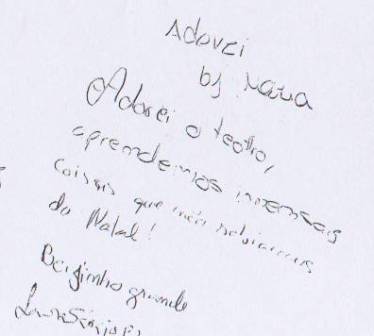 Adorei
by Mara
Adorei o teatro,
aprendemos imensas
coisas que não sabiamos
do Natal!
Beijinho grande